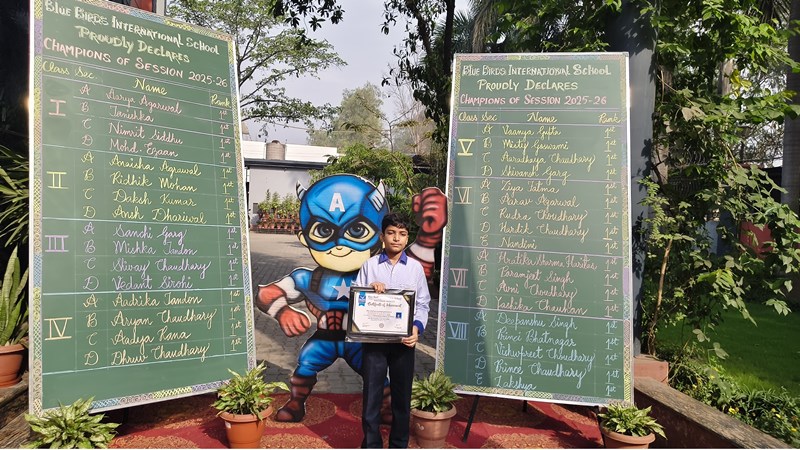 BLUE BIRDS INTERNATIONAL SCHOOL
PROUDLY DECLARES
CHAMPIONS OF SESSION 2025-26
Class Sec Name Rank
I A Aarya Agarwal 1st
B Tanishka 1st
C Nimrit Siddhu 1st
D Mohd. Ezaan 1st
II A Anaisha Agrawal 1st
B Ridhik Mohan 1st
C Daksh Kumar 1st
D Ansh Dhariwal 1st
III A Sanchi Garg 1st
B Mishka Tandon 1st
C Shivay Chaudhary 1st
D Vedant Sirohi 1st
IV A Aadrika Tandon 1st
B Aryan Chaudhary 1st
C Aadya Rana 1st
D Dhruv Chaudhary 1st
A
Certificate of Achievement
BLUE BIRDS INTERNATIONAL SCHOOL
PROUDLY DECLARES
CHAMPIONS OF SESSION 2025-26
Class Sec Name Rank
V A Vaanya Gupta 1st
B Misty Goswami 1st
C Aaradhaya Chaudhary 1st
D Shivansh Garg 1st
VI A Ziya Fatma 1st
B Aarav Agarwal 1st
C Rudra Choudhary 1st
D Hardik Chaudhary 1st
E Nandini 1st
VII A Pratika Sharma 1st
B Paramjot Singh 1st
C Avni Choudhary 1st
D Yashika Chauhan 1st
VIII A Deepanshu Singh 1st
B Prince Bhatnagar 1st
C Vishvpreet Choudhary 1st
D Prince Chaudhary 1st
E Lakshya 1st